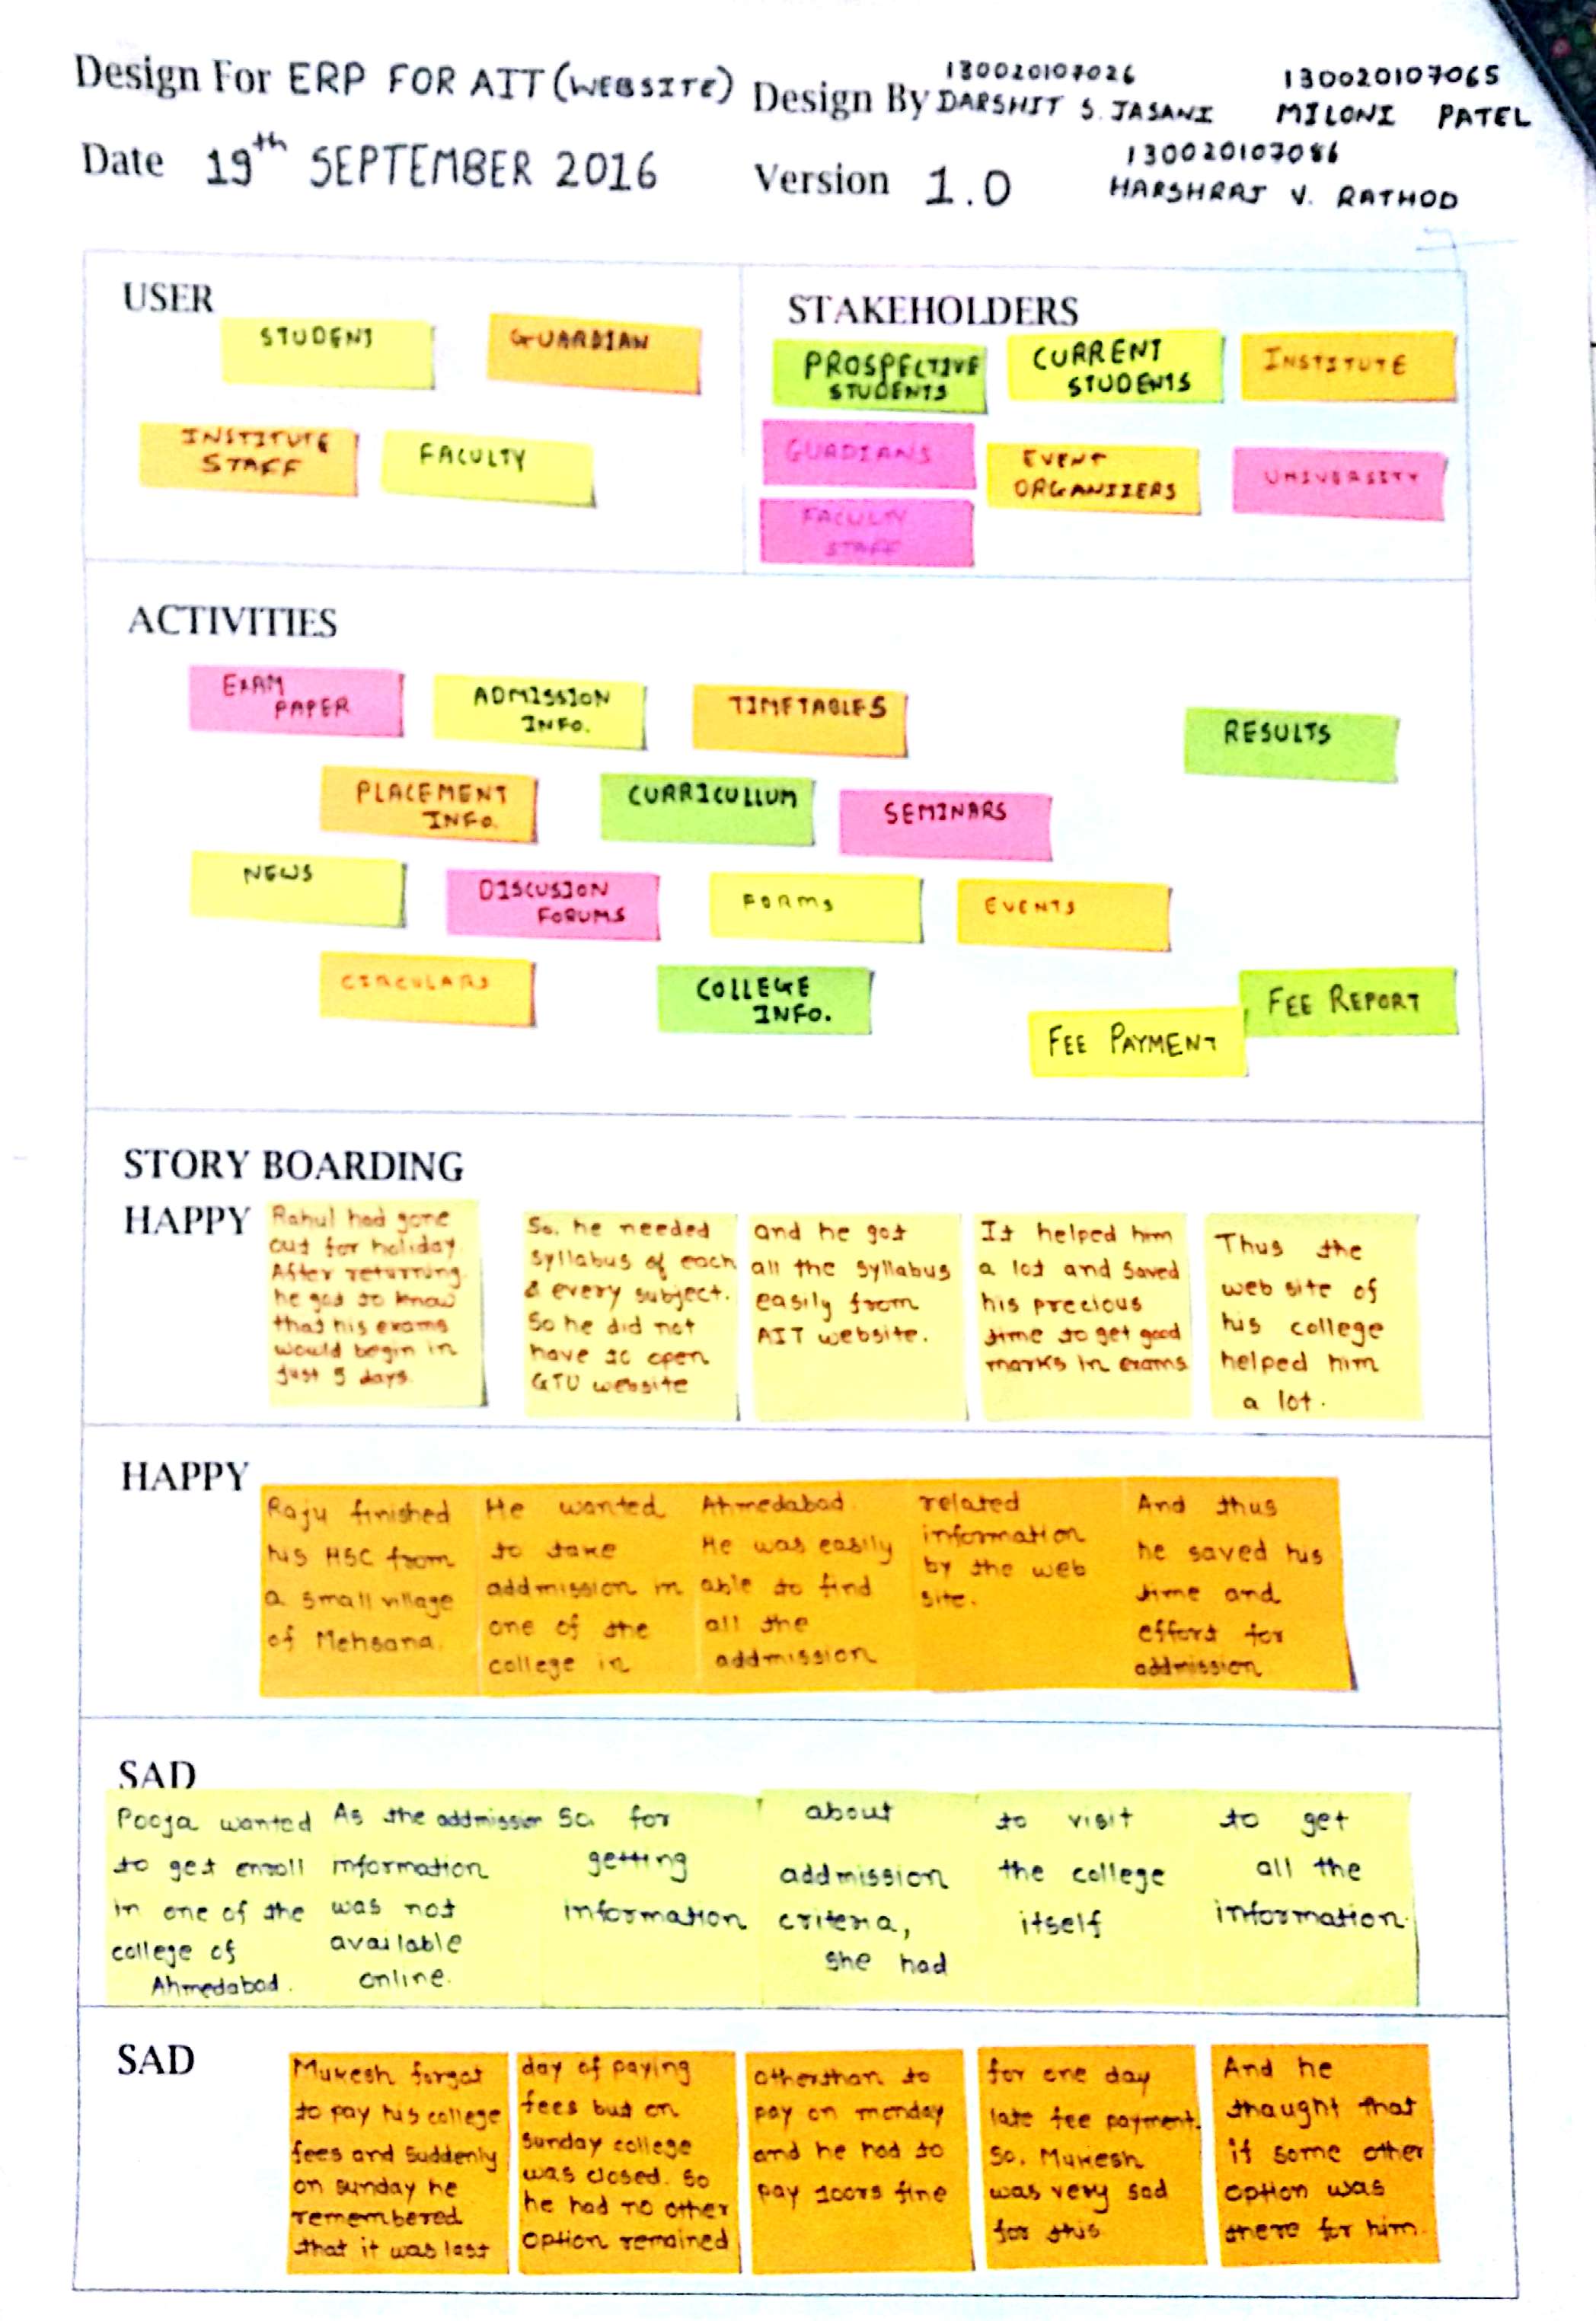 Design For ERP FOR AIT (WEBSITE)
Design By 130020107026 DARSHIT S. JASANI
130020107065 MILONI PATEL
130020107086 HARSHRAJ V. RATHOD
Date 19th SEPTEMBER 2016
Version 1.0
USER
STUDENT
GUARDIAN
INSTITUTE
STAFF
FACULTY
STAKEHOLDERS
PROSPECTIVE
STUDENTS
CURRENT
STUDENTS
INSTITUTE
GUADIANS
EVENT
ORGANIZERS
UNIVERSITY
FACULTY
STAFF
ACTIVITIES
EXAM
PAPER
ADMISSION
INFO.
TIMETABLES
RESULTS
PLACEMENT
INFO.
CURRICULLUM
SEMINARS
NEWS
DISCUSION
FORUMS
FORMS
EVENTS
CIRCULARS
COLLEGE
INFO.
FEE PAYMENT
FEE REPORT
STORY BOARDING
HAPPY
Rahul had gone
out for holiday.
After returning
he got to know
that his exams
would begin in
just 5 days.
So, he needed
syllabus of each
& every subject.
So he did not
have to open
GTU website
and he got
all the syllabus
easily from
AIT website.
It helped him
a lot and saved
his precious
time to get good
marks in exams
Thus the
web site of
his college
helped him
a lot.
HAPPY
Raju finished
his HSC from
a small village
of Mehsana.
He wanted
to take
addmission in
one of the
college in
Ahmedabad.
He was easily
able to find
all the
addmission
related
information
by the web
site.
And thus
he saved his
time and
effort for
addmission
SAD
Pooja wanted
to get enroll
in one of the
college of
Ahmedabad.
As the addmission
information
was not
available
online.
So, for
getting
information
about
addmission
criteria,
she had
to visit
the college
itself
to get
all the
information.
SAD
Mukesh forgot
to pay his college
fees and suddenly
on sunday he
remembered
that it was last
day of paying
fees but on
sunday college
was closed. so
he had no other
option remained
otherthan to
pay on monday
and he had to
pay 100rs fine
for one day
late fee payment.
So, Mukesh
was very sad
for this
And he
thaught that
if some other
option was
there for him.